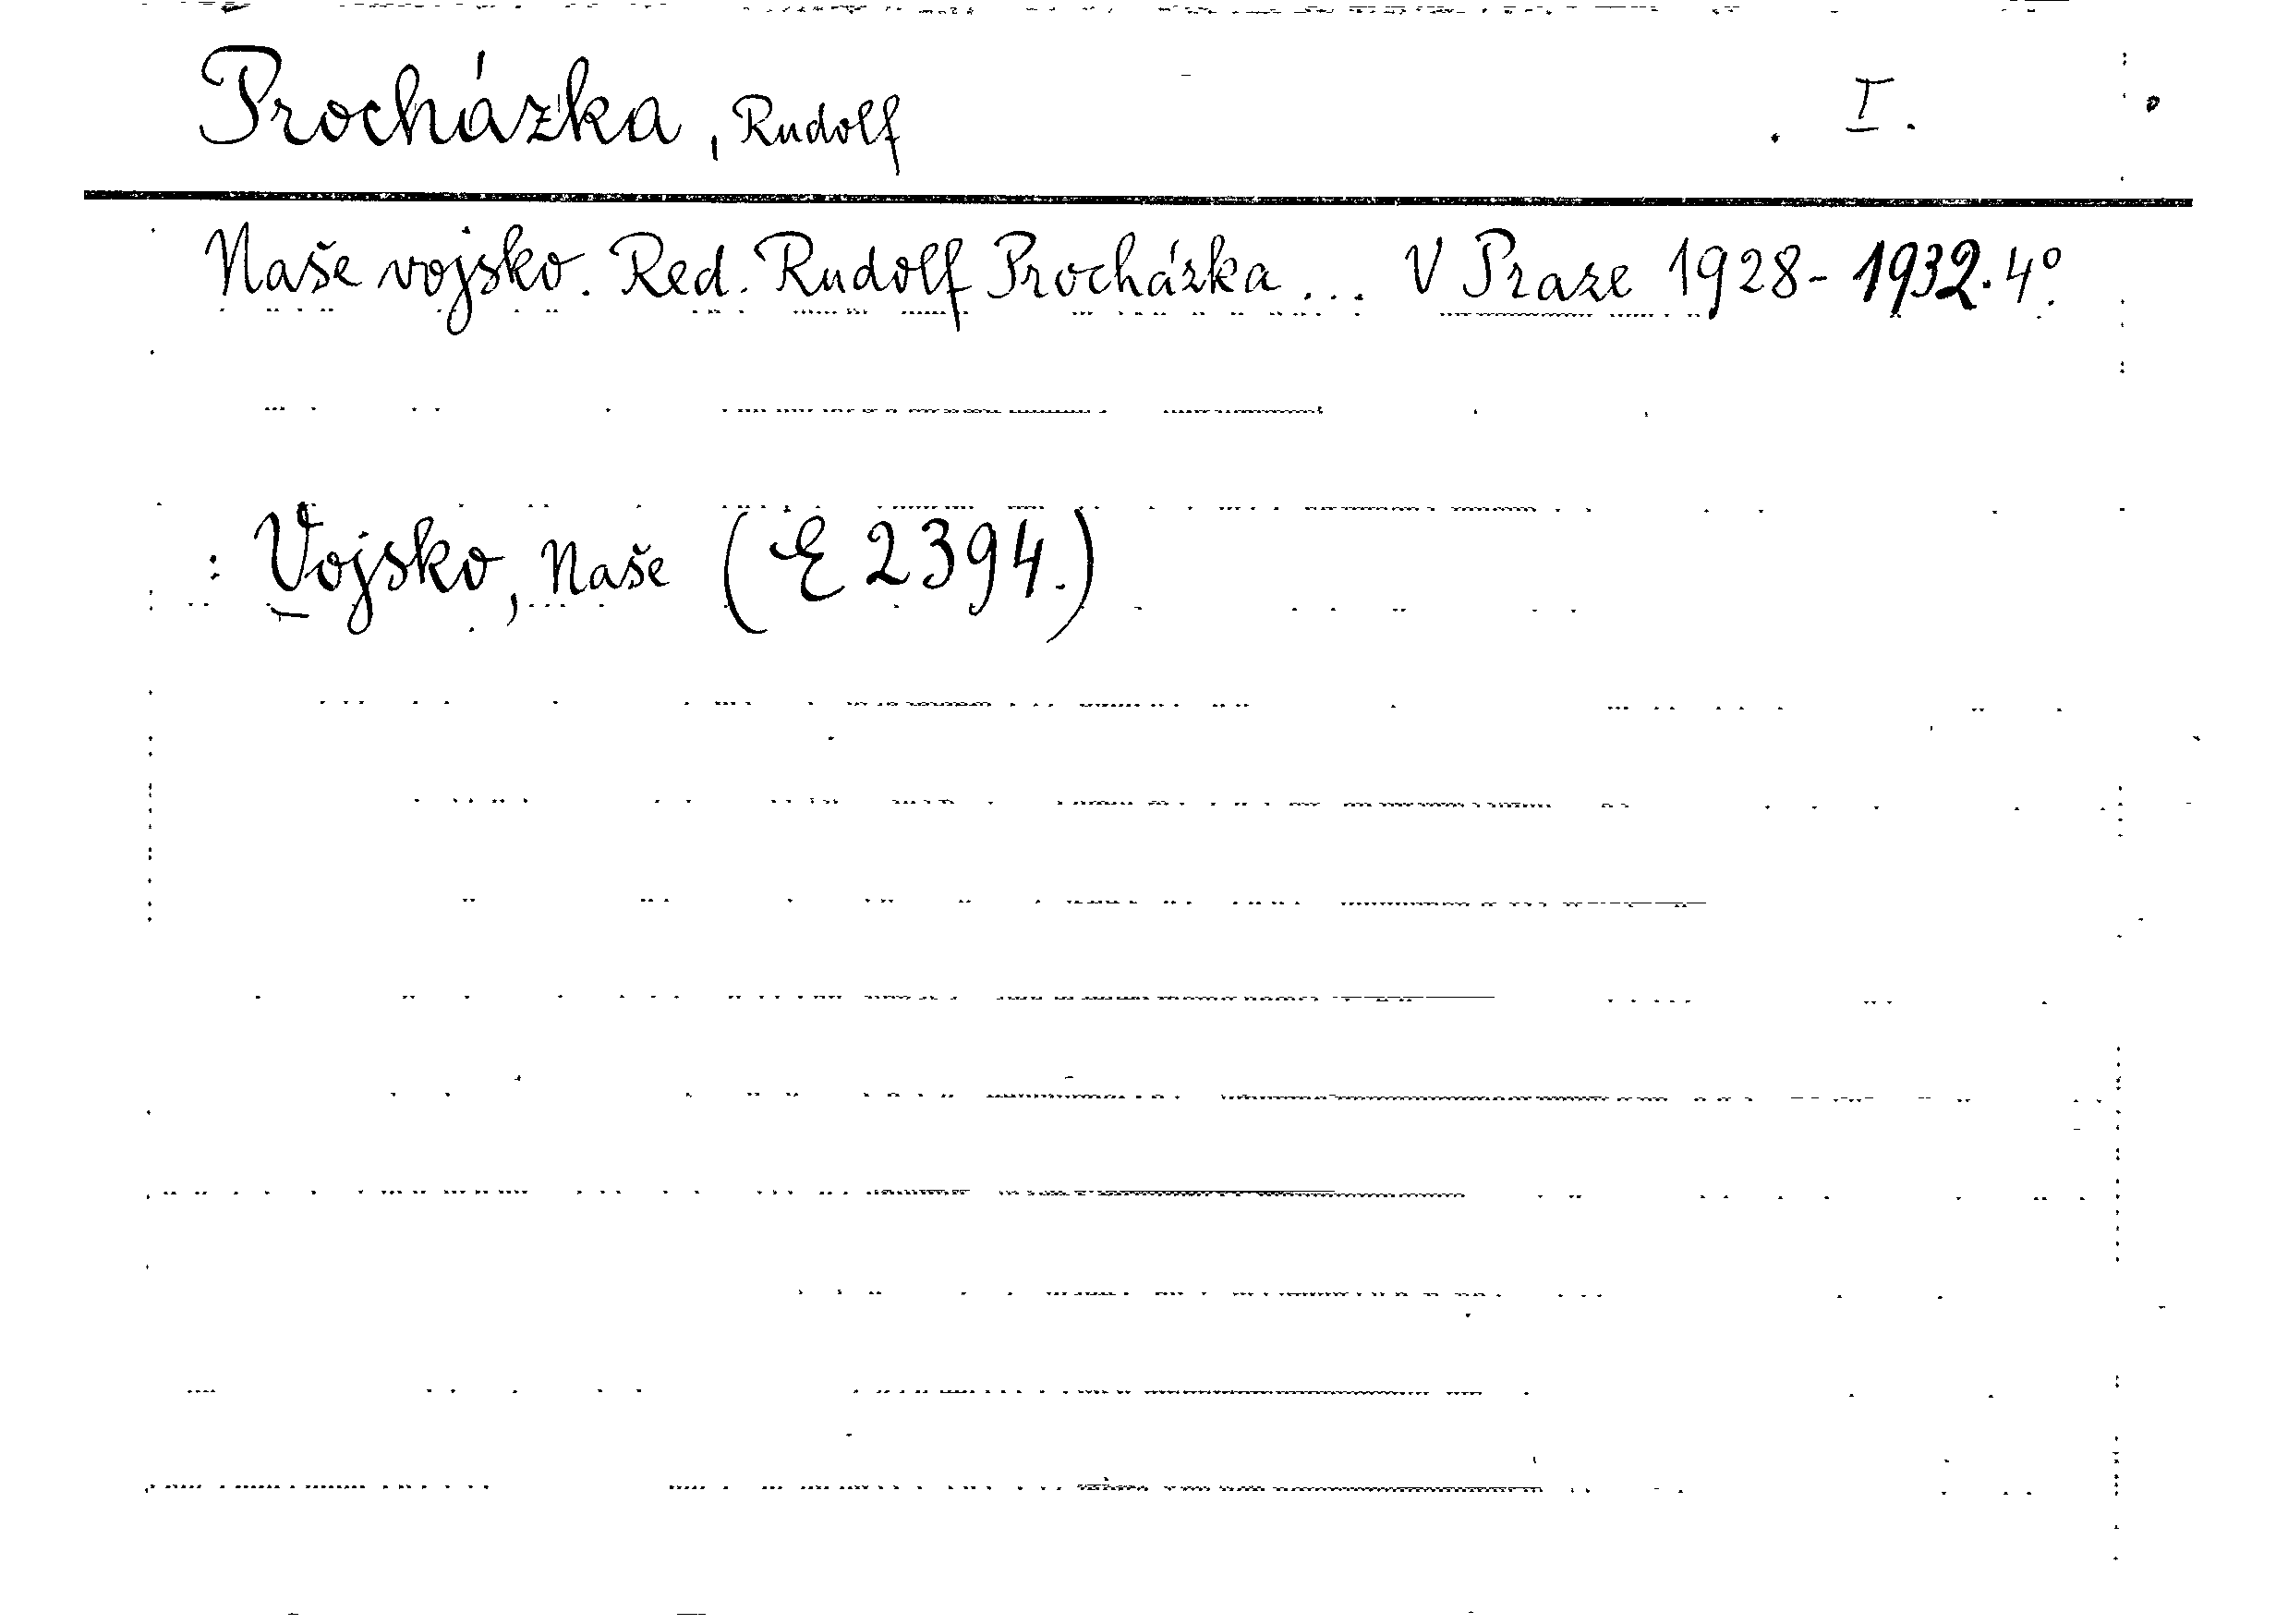 Procházka, Rudolf . I.
Naše vojsko. Red. Rudolf Procházka ... V Praze 1928-1932. 4°.
: Vojsko, Naše (E 2394.)